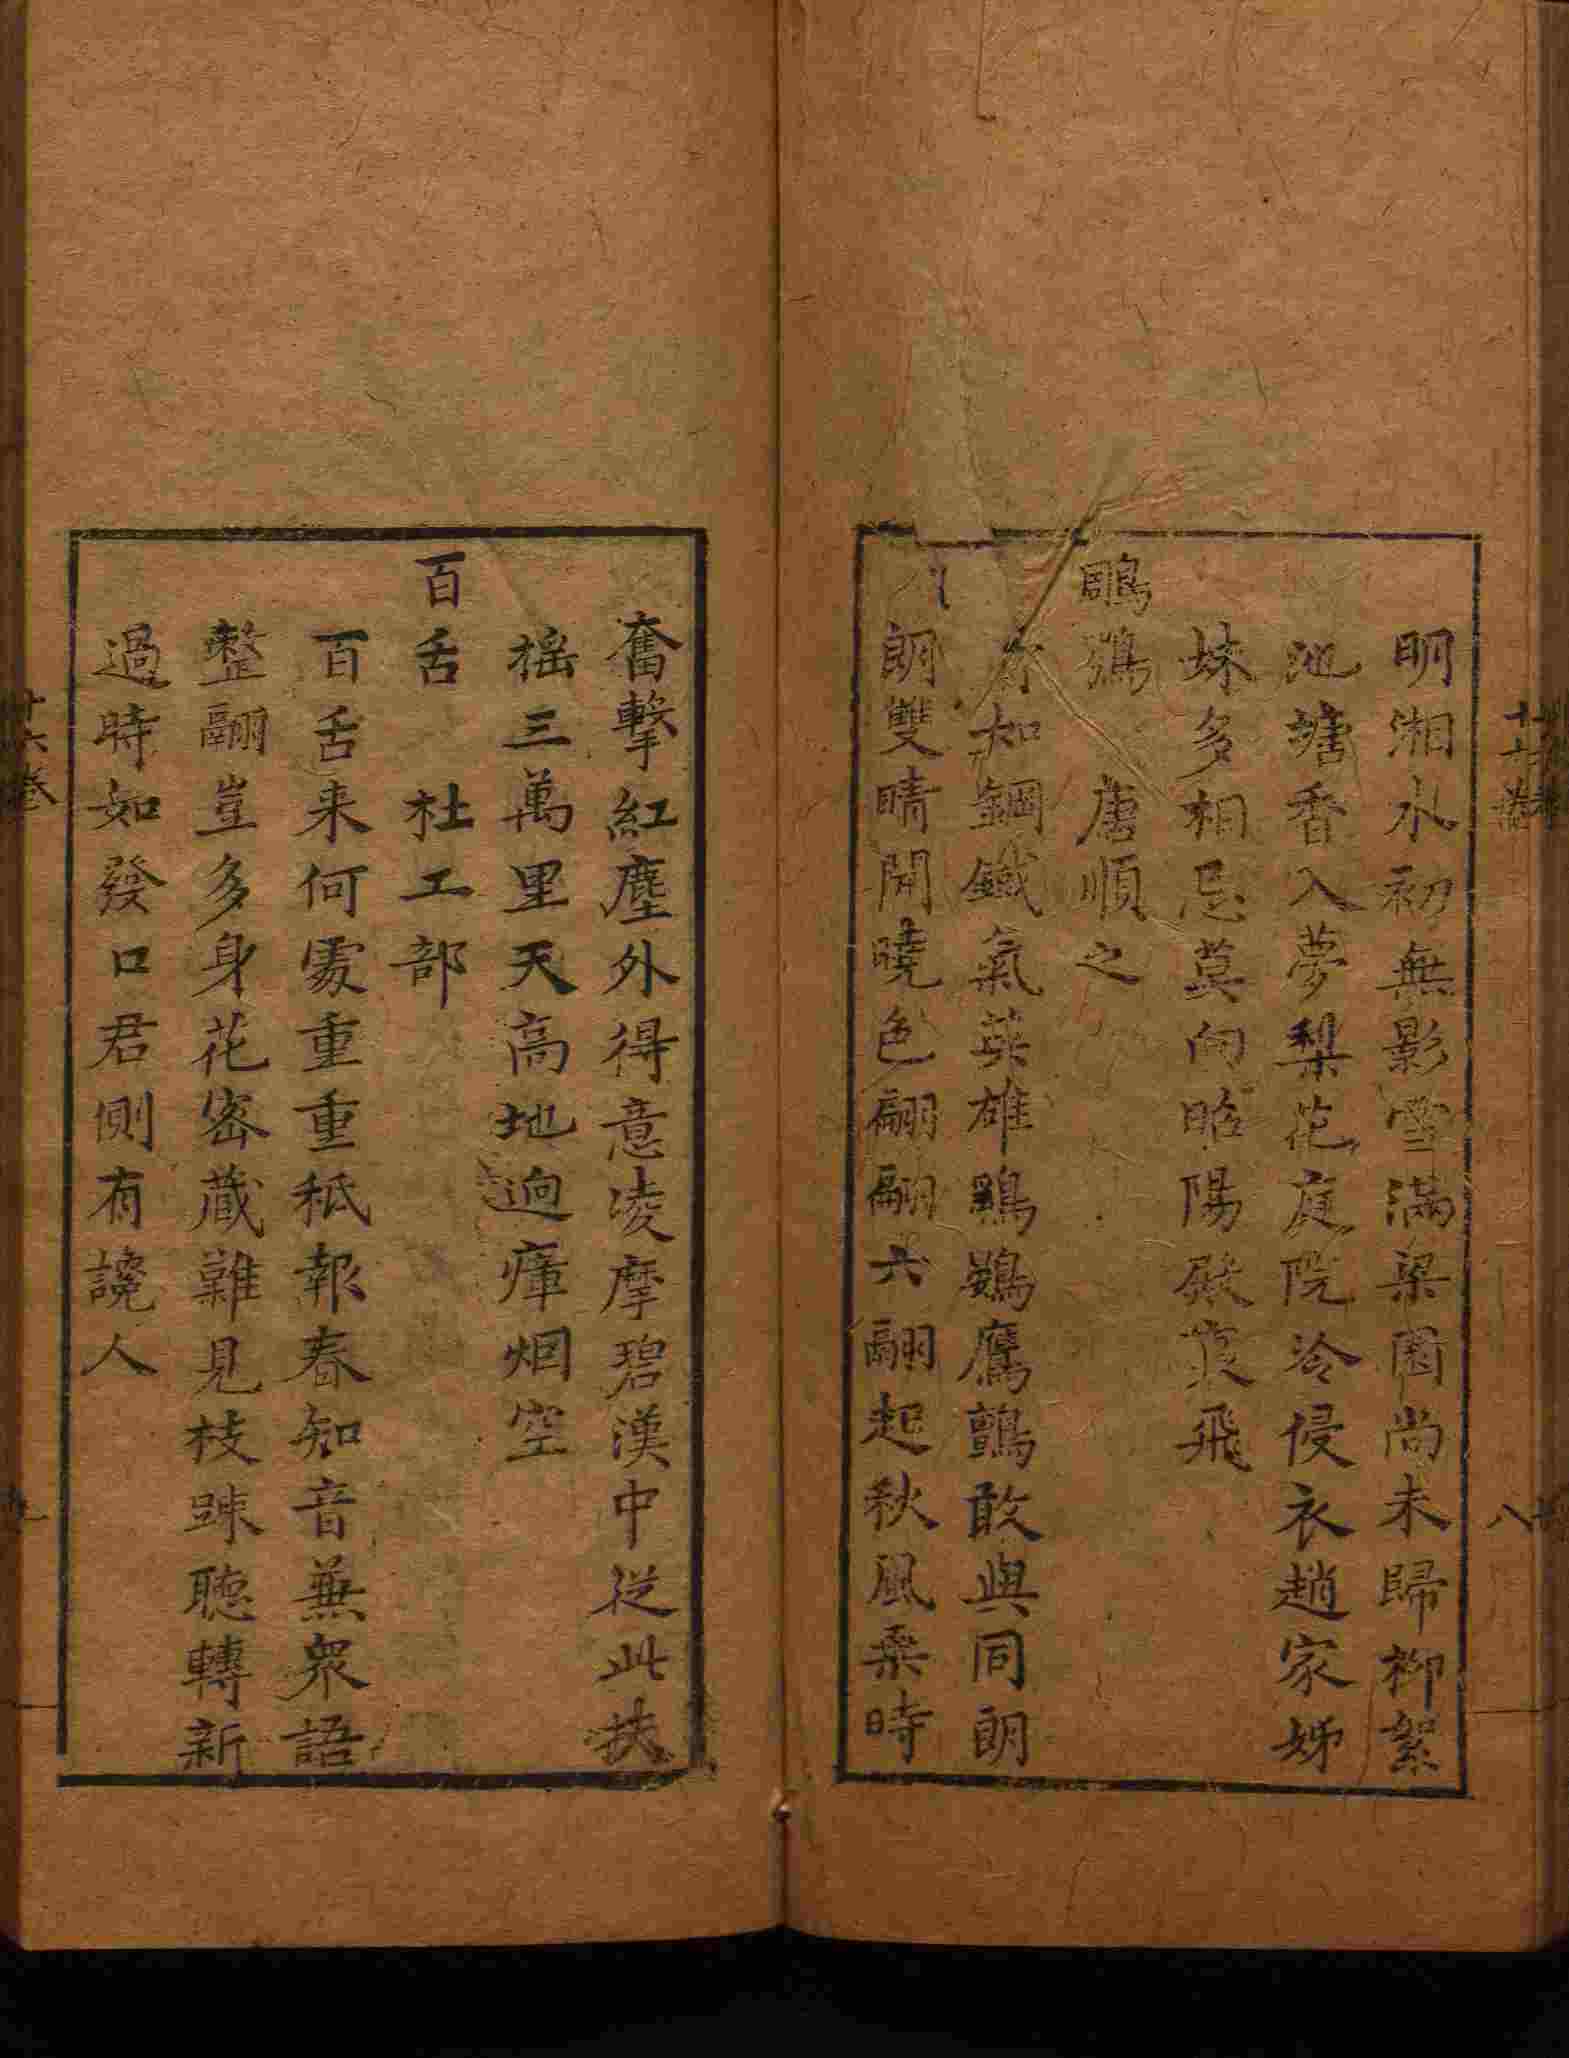 明湘水初無影雪滿梁園尚未歸柳絮
池塘香入夢梨花庭院冷侵衣趙家姊
妹多相忌莫向昭陽殿裏飛
鵰鶚　唐順之
如鋼鐵氣英雄鷄鷃鷹鸇敢與同朗
朗雙睛開曉色翩翩六翮起秋風乗時
奮擊紅塵外得意凌摩碧漢中從此扶
搖三萬里天高地逈瘴烟空
百舌　杜工部
百舌来何處重重秖報春知音兼衆語
整翮豈多身花密藏難見枝踈聴轉新
過時如發口君側有讒人